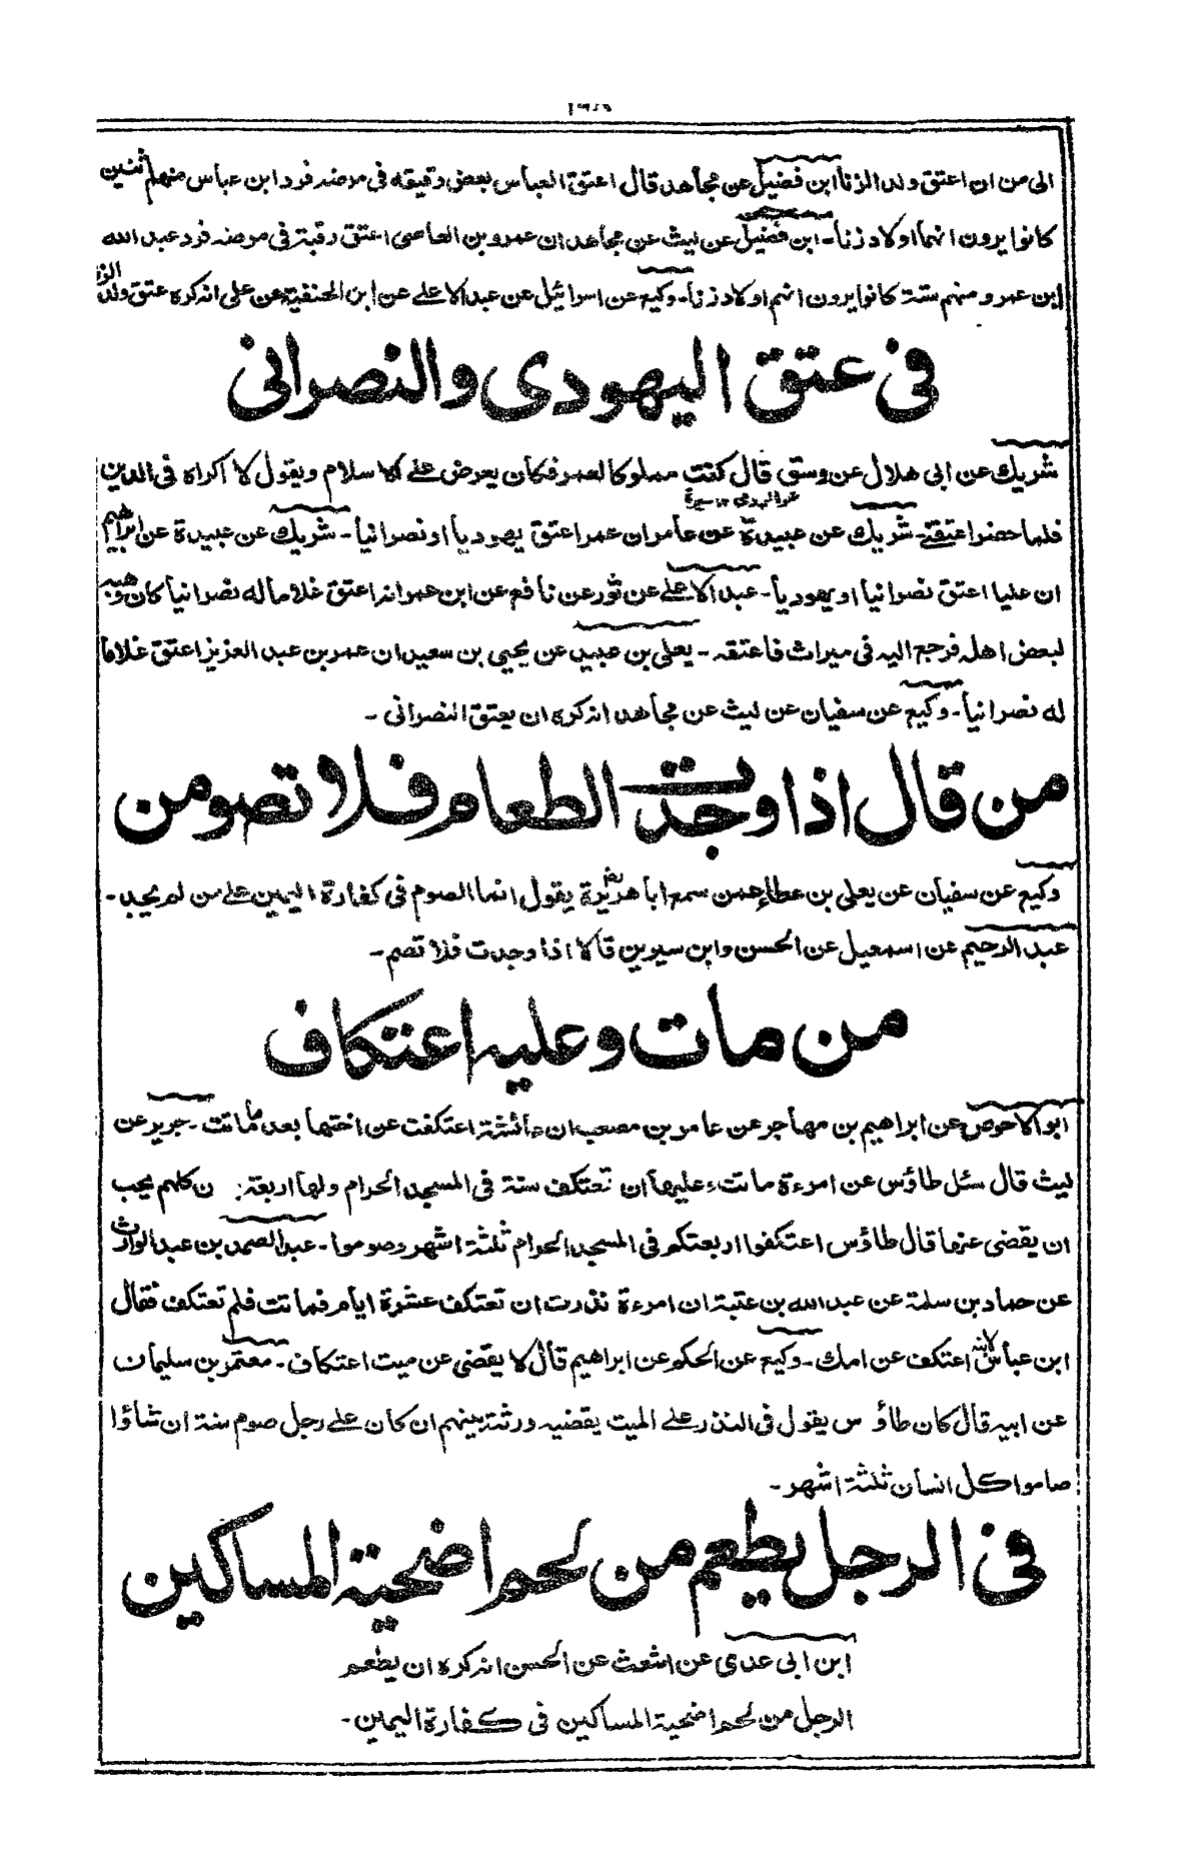 الى من ان اعتق ولد الزنا ابن فضيل عن مجاهد قال اعتق العباس بعض رقيقه فى مرضه فرد ابن عباس منهم اثنين
كانوا يرون انهما اولاد زنا - ابن فضيل عن ليث عن مجاهد ان عمرو بن العاصى اعتق رقبة فى مرضه فرد عبد الله
ابن عمرو منهم ستة كانوا يرون انهم اولاد زنا - وكيع عن اسرائيل عن عبد الاعلے عن ابن الحنفية عن على انه كره عتق ولد الزنا
فى عتق اليهودى والنصرانى
شريك عن ابى هلال عن وسق قال كنت مملوكا لعمر فكان يعرض علے الاسلام ويقول لا اكراه فى الدين
فلما حضر اعتقنے - شريك عن عبيدة عن عامر ان عمر اعتق يهوديا او نصرانيا - شريك عن عبيدة عن ابراهيم
ان عليا اعتق نصرانيا او يهوديا - عبد الاعلے عن ثور عن نافع عن ابن عمر انه اعتق غلاما له نصرانيا كان وهبه
لبعض اهله فرجع اليه فى ميراث فاعتقه - يعلى بن عبيد عن يحيى بن سعيد ان عمر بن عبد العزيز اعتق غلاما
له نصرانيا - وكيع عن سفيان عن ليث عن مجاهد انه كره ان يعتق النصرانى -
من قال اذا وجدت الطعام فلا تصومن
وكيع عن سفيان عن يعلى بن عطاء عمن سمع ابا هريرة يقول انما الصوم فى كفارة اليمين علے من لم يجد -
عبد الرحيم عن اسمعيل عن الحسن وابن سيرين قالا اذا وجدت فلا تصم -
من مات وعليه اعتكاف
ابو الاحوص عن ابراهيم بن مهاجر عن عامر بن مصعب ان عائشة اعتكفت عن اختها بعد ما ماتت - جرير عن
ليث قال سئل طاؤس عن امرءة ماتت وعليها ان تعتكف سنة فى المسجد الحرام ولها اربعة ن كلهم يحب
ان يقضى عنها قال طاؤس اعتكفوا اربعتكم فى المسجد الحرام ثلثة اشهر وصوموا - عبد الصمد بن عبد الوارث
عن حماد بن سلمة عن عبد الله بن عتبة ان امرءة نذرت ان تعتكف عشرة ايام فماتت فلم تعتكف فقال
ابن عباس لابنه اعتكف عن امك - وكيع عن الحكم عن ابراهيم قال لا يقضى عن ميت اعتكاف - معتمر بن سليمان
عن ابيه قال كان طاؤس يقول فى النذر علے الميت يقضيه ورثته بينهم ان كان علے رجل صوم سنة ان شاؤا
صاموا كل انسان ثلثة اشهر -
فى الرجل يطعم من لحم اضحية المساكين
ابن ابى عدى عن اشعث عن الحسن انه كره ان يطعم
الرجل من لحم اضحية المساكين فى كفارة اليمين -